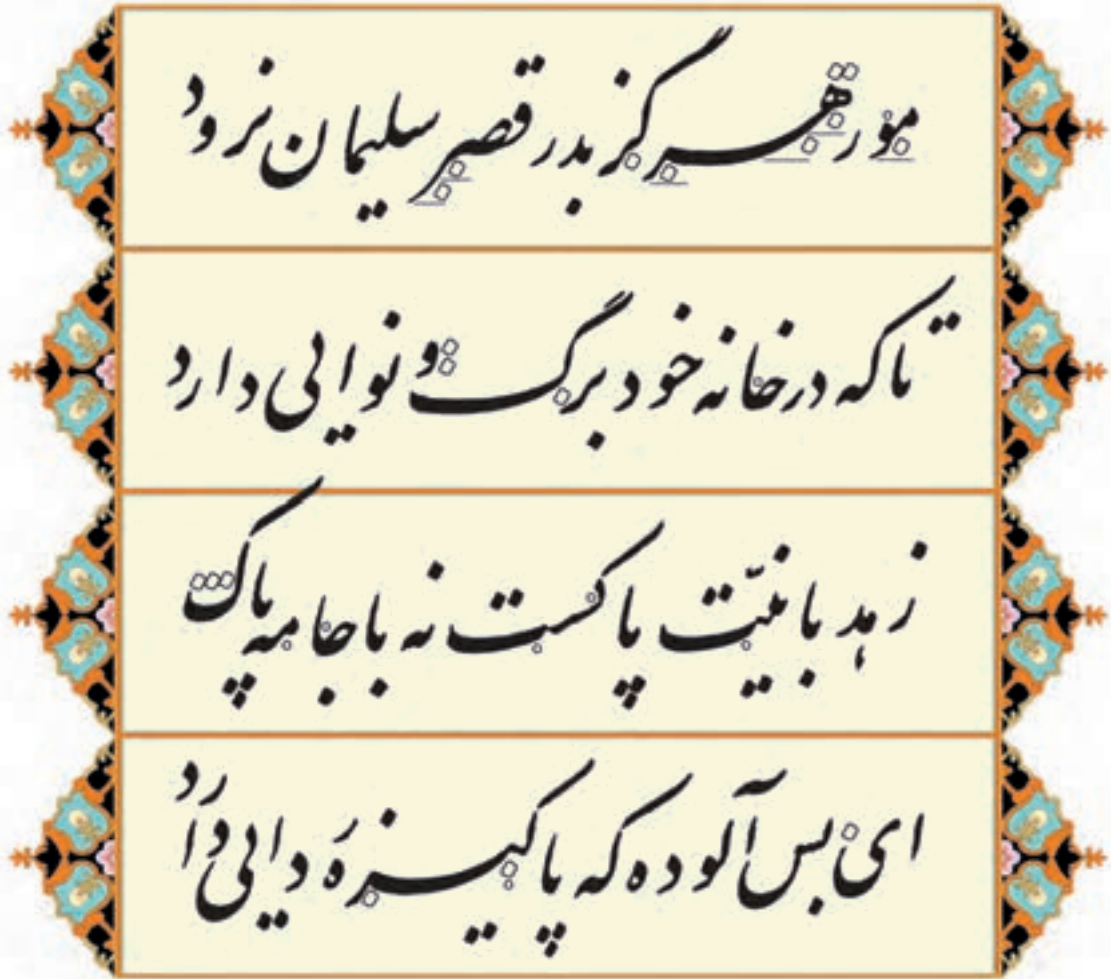 مور هرگز بدر قصر سلیمان نرود
تا که در خانه خود برگ و نوایی دارد
زهد با نیّت پاکست نه با جامه پاک
ای بس آلوده که پاکیزه رَدایی دارد